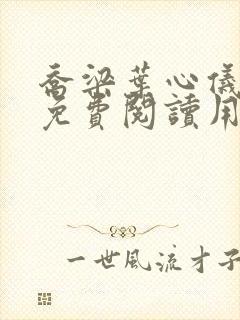 喬梁葉心儀
免費閱讀用
一世風流才子